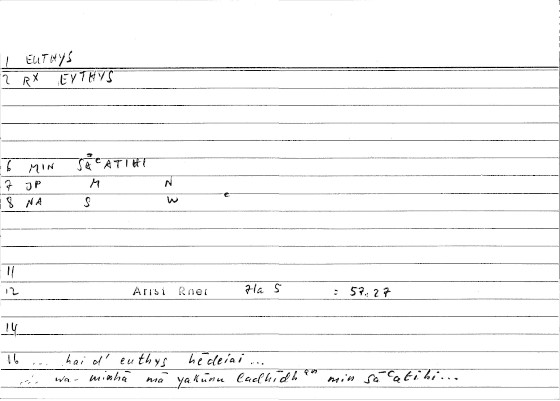 1 EUTHYS
2 RX EYTHYS
6 MIN SĀʿATIHI
7 JP M N
8 NA S W e
11
12 Arist Rhet 71a 5 : 57.27
14
16 ... hai d' euthys hēdeiai ...
... wa-minhā mā yakūnu ladhīdhᵃⁿ min sāʿatihi ...